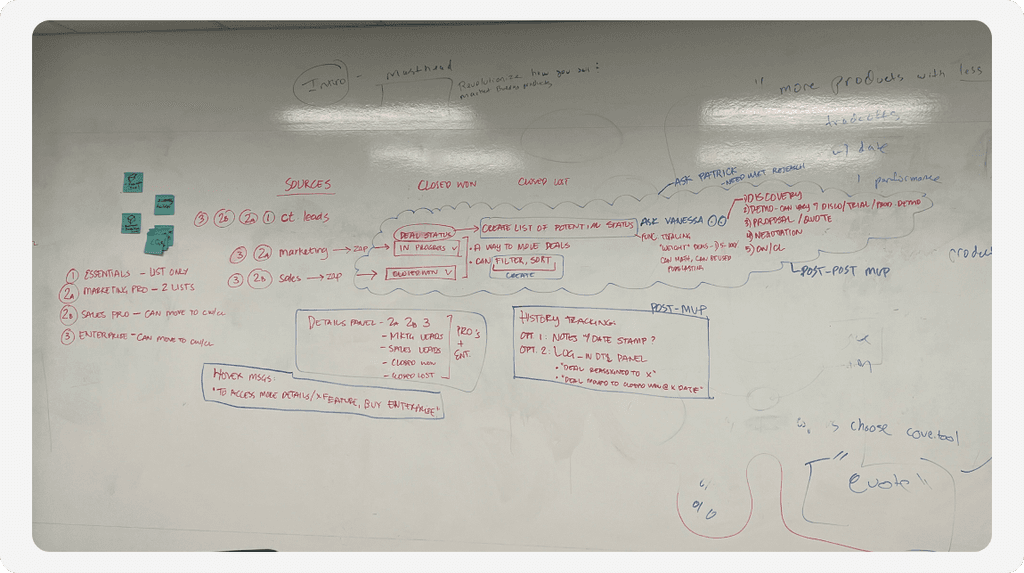 Intro - masthead
Revolutionize how you
market products
" more products with less
w/ date
performance
SOURCES
CLOSED WON
CLOSED LOST
ASK PATRICK
- NEED MKT RESEARCH
3 2B 2A 1 ct leads
3 2A marketing → ZAP
3 2B sales → ZAP
DEAL STATUS
IN PROGRESS
CLOSED WON
CREATE LIST OF POTENTIAL STATUS
• A WAY TO MOVE DEALS
• CAN FILTER, SORT
CREATE
ASK VANESSA
"WEIGHT" DEALS
FORECASTING
1) DISCOVERY
2) DEMO - CAN VARY ? DISCO/TRIAL/PROD. DEMO
3) PROPOSAL / QUOTE
4) NEGOTIATION
5) CW/CL
POST-POST MVP
1 ESSENTIALS - LIST ONLY
2A MARKETING PRO - 2 LISTS
2B SALES PRO - CAN MOVE TO CW/CL
3 ENTERPRISE - CAN MOVE TO CW/CL
DETAILS PANEL - 2A 2B 3
- MKTG LEADS
- SALES LEADS
- CLOSED WON
- CLOSED LOST
PRO'S
+
ENT.
POST-MVP
HISTORY TRACKING:
OPT. 1: NOTES / DATE STAMP ?
OPT. 2: LOG - IN DTL PANEL
• "DEAL REASSIGNED TO X"
• "DEAL MOVED TO CLOSED WON @ X DATE"
HOVER MSGS:
"TO ACCESS MORE DETAILS/X FEATURE, BUY ENTERPRISE"
choose cove.tool
"Quote"